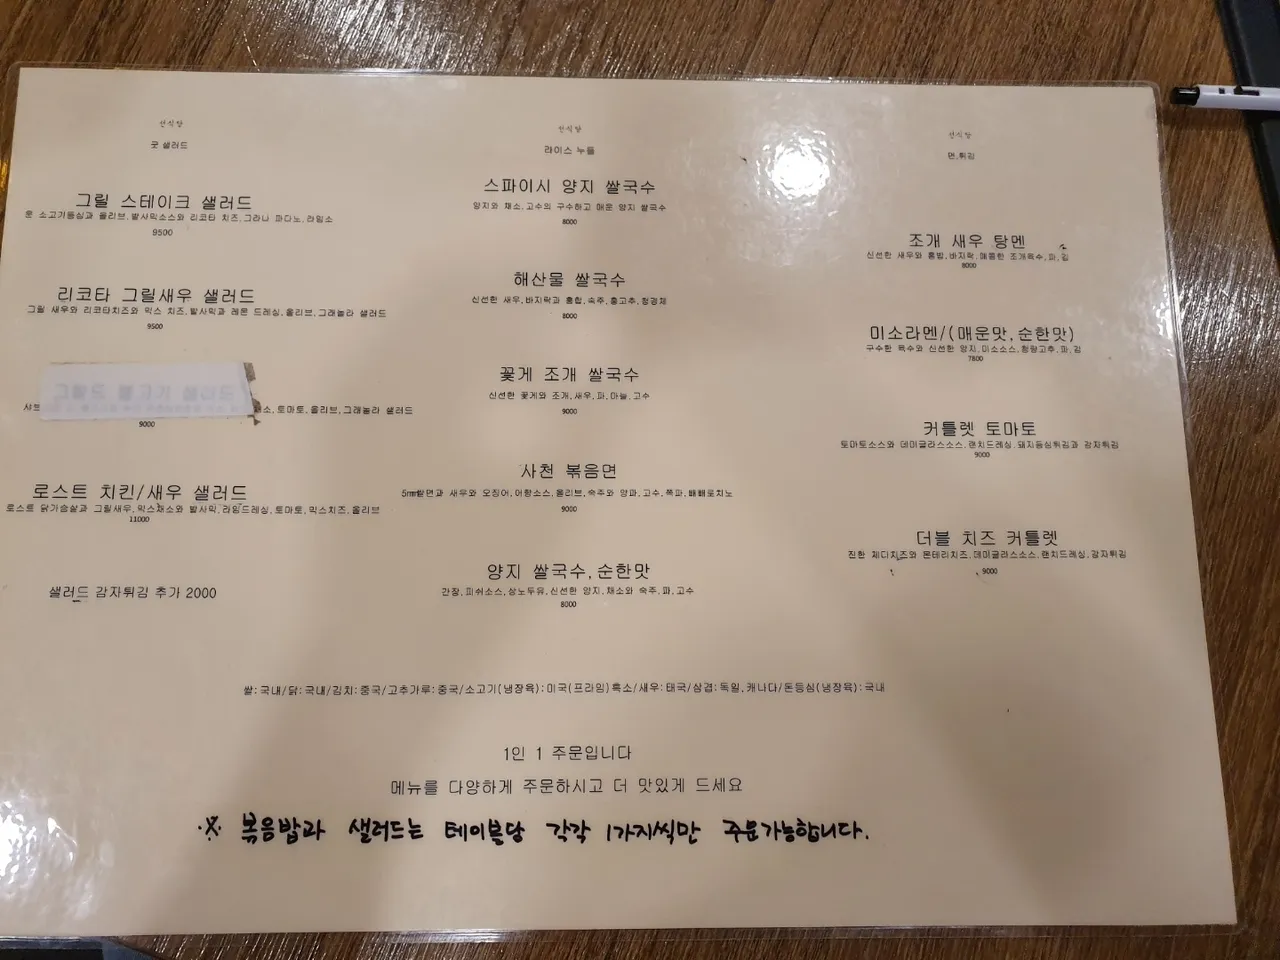 선식당
굿 샐러드
그릴 스테이크 샐러드
운 소고기등심과 올리브,발사믹소스와 리코타 치즈,그라나 파다노,라임소
9500
리코타 그릴새우 샐러드
그릴 새우와 리코타치즈와 믹스 치즈,발사믹과 레몬 드레싱,올리브,그래놀라 샐러드
9500
그릴드 불고기 샐러드
채소,토마토,올리브,그래놀라 샐러드
9000
로스트 치킨/새우 샐러드
로스트 닭가슴살과 그릴새우,믹스채소와 발사믹,라임드레싱,토마토,믹스치즈,올리브
11000
샐러드 감자튀김 추가 2000
선식당
라이스 누들
스파이시 양지 쌀국수
양지와 채소,고수의 구수하고 매운 양지 쌀국수
8000
해산물 쌀국수
신선한 새우,바지락과 홍합,숙주,홍고추,청경채
8000
꽃게 조개 쌀국수
신선한 꽃게와 조개,새우,파,마늘,고수
9000
사천 볶음면
5mm쌀면과 새우와 오징어,어향소스,올리브,숙주와 양파,고수,쪽파,뻬뻬로치노
9000
양지 쌀국수,순한맛
간장,피쉬소스,상노두유,신선한 양지,채소와 숙주,파,고수
8000
선식당
면,튀김
조개 새우 탕멘
신선한 새우와 홍합,바지락,매콤한 조개육수,파,김
8000
미소라멘/(매운맛,순한맛)
구수한 육수와 신선한 양지,미소소스,청량고추,파,김
7800
커틀렛 토마토
토마토소스와 데미글라스소스,랜치드레싱,돼지등심튀김과 감자튀김
9000
더블 치즈 커틀렛
진한 체다치즈와 몬테리치즈,데미글라스소스,랜치드레싱,감자튀김
9000
쌀:국내/닭:국내/김치:중국/고추가루:중국/소고기(냉장육):미국(프라임)흑소/새우:태국/삼겹:독일,캐나다/돈등심(냉장육):국내
1인 1 주문입니다
메뉴를 다양하게 주문하시고 더 맛있게 드세요
※ 볶음밥과 샐러드는 테이블당 각각 1가지씩만 주문가능합니다.